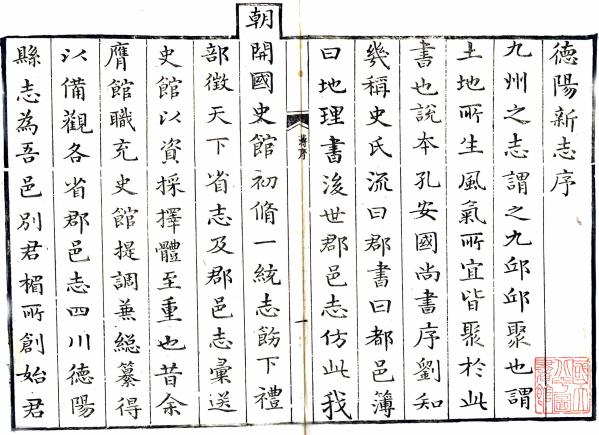 德陽新志序
九州之志謂之九邱邱聚也謂
土地所生風氣所宜皆聚於此
書也說本孔安國尚書序劉知
幾稱史氏流曰郡書曰都邑簿
曰地理書後世郡邑志仿此我
一
朝開國史館初脩一統志飭下禮
部徵天下省志及郡邑志彙送
史館以資採擇體至重也昔余
膺館職充史館提調兼總纂得
以備觀各省郡邑志四川德陽
縣志為吾邑別君楣所創始君